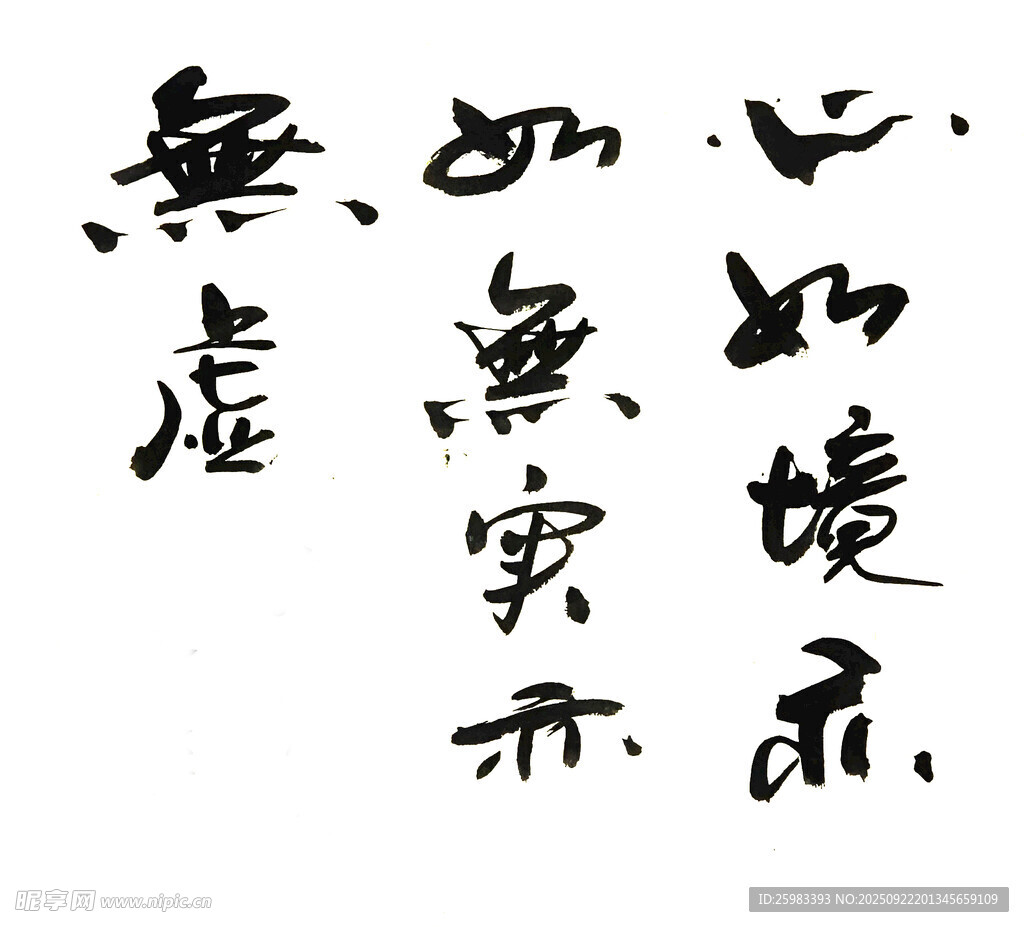 心如境亦
如無实亦
無虚
昵享网 www.nipic.cn
ID:25983393 NO:20250922201345659109